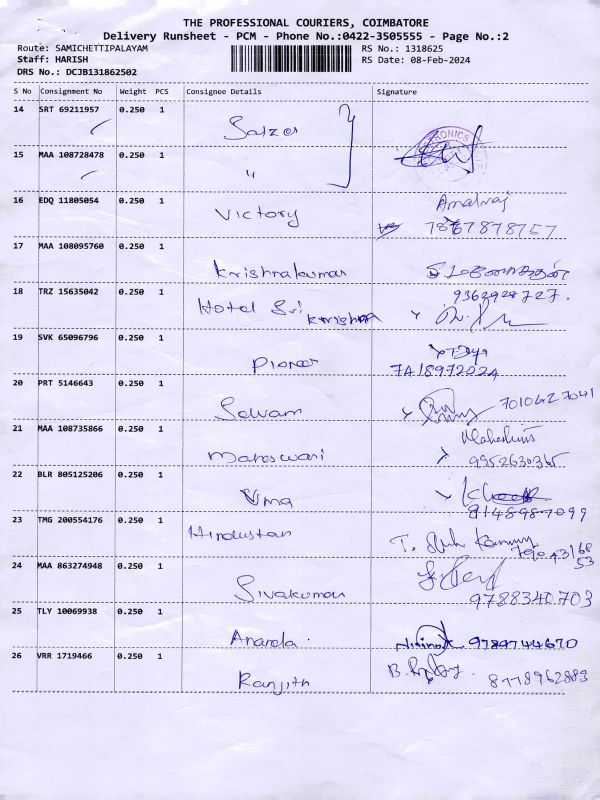 THE PROFESSIONAL COURIERS, COIMBATORE
Delivery Runsheet - PCM - Phone No.:0422-3505555 - Page No.:2
Route: SAMICHETTIPALAYAM RS No.: 1318625
Staff: HARISH RS Date: 08-Feb-2024
DRS No.: DCJB131862502
S No Consignment No Weight PCS Consignee Details Signature
14 SRT 69211957 0.250 1 Salzer
15 MAA 108728478 0.250 1 "
16 EDQ 11805054 0.250 1 Victory Amalraj
17 MAA 108095760 0.250 1 Krishnakumar
18 TRZ 15635042 0.250 1 Hotel Sri Krishna 9362928727.
19 SVK 65096796 0.250 1 Pioneer
7418972024
20 PRT 5146643 0.250 1 Selvam 7010427041
21 MAA 108735866 0.250 1 Maheswari
9952630365
22 BLR 805125206 0.250 1 Uma
8148987099
23 TMG 200554176 0.250 1 Hindustan
24 MAA 863274948 0.250 1 Sivakumar
9788340703
25 TLY 10069938 0.250 1 Ananda. 9789744670
26 VRR 1719466 0.250 1 Ranjith 8978962883